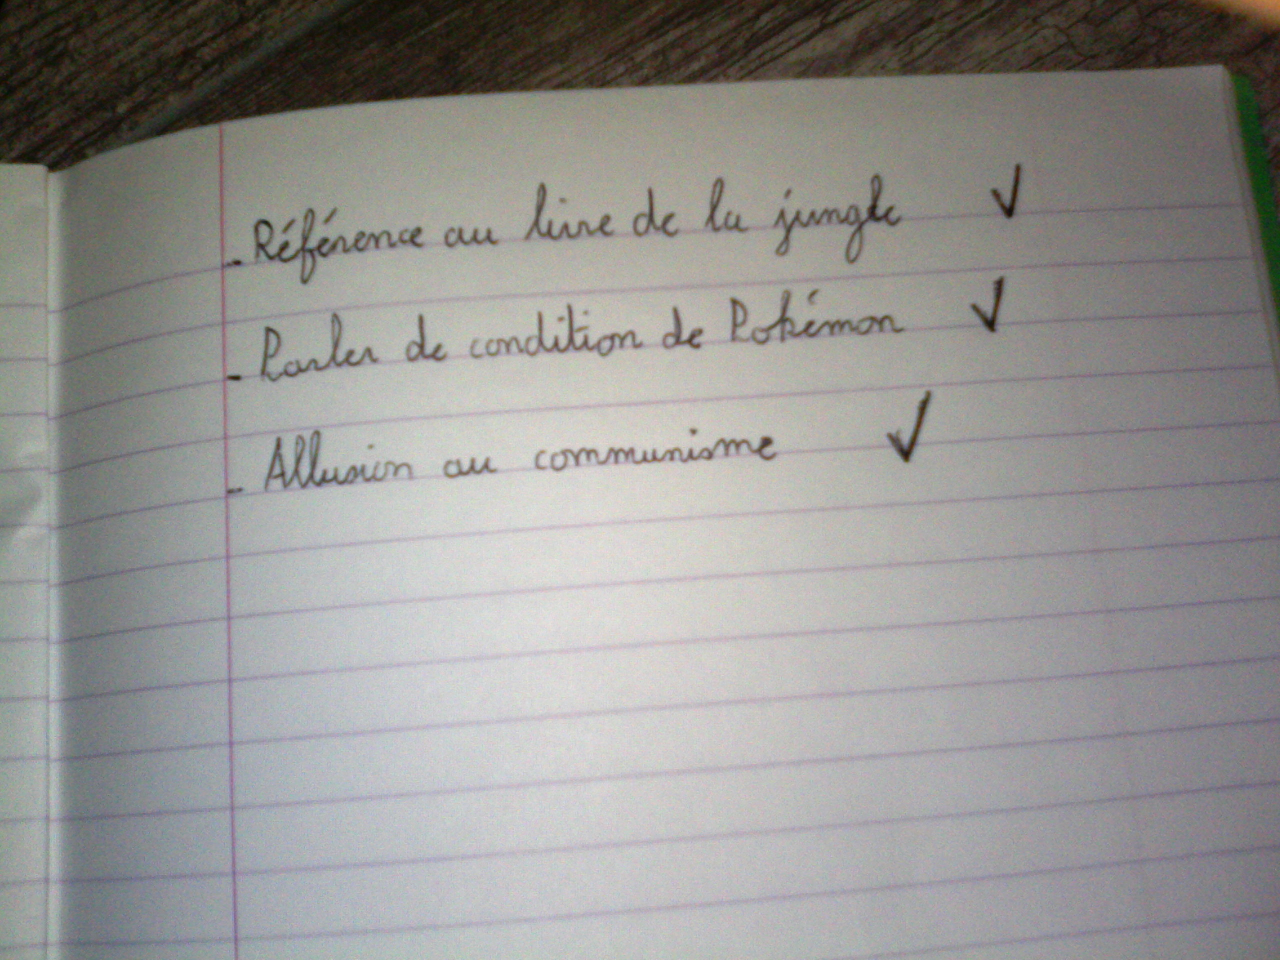 - Référence au livre de la jungle ✓
- Parler de condition de Pokémon ✓
- Allusion au communisme ✓